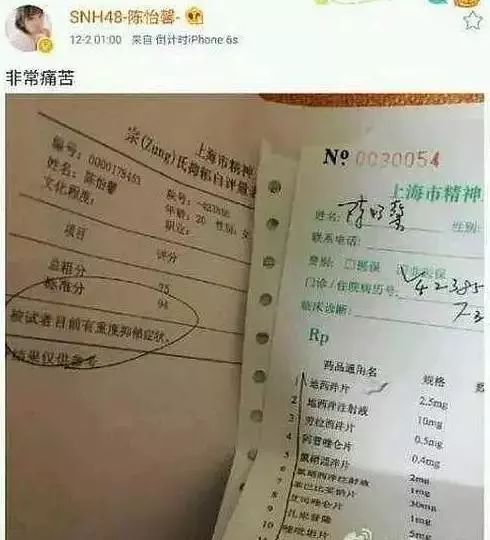 SNH48-陈怡馨-
12-2 01:00 来自 倒计时iPhone 6s
非常痛苦
上海市精神
宗(Zung)氏抑郁自评量表
编号: 0000178453
姓名: 陈怡馨
文化程度:
年龄: 20 性别: 女
职业:
项目 评分
总粗分 75
标准分 94
被试者目前有重度抑郁症状.
结果仅供参考
№ 0030054
上海市精神
姓名: 性别:
联系电话:
费别: □医保 □非医保
门诊/住院病历号:
临床诊断:
Rp
药品通用名 规格
1 地西泮片 2.5mg
2 地西泮注射液 10mg
3 劳拉西泮片 0.5mg
4 阿普唑仑片 0.4mg
5 氯硝西泮片 2mg
6 氯硝西泮注射液 1mg
7 苯巴比妥片 30mg
8 艾司唑仑片 1mg
9 扎来普隆 5mg
10 唑吡坦片